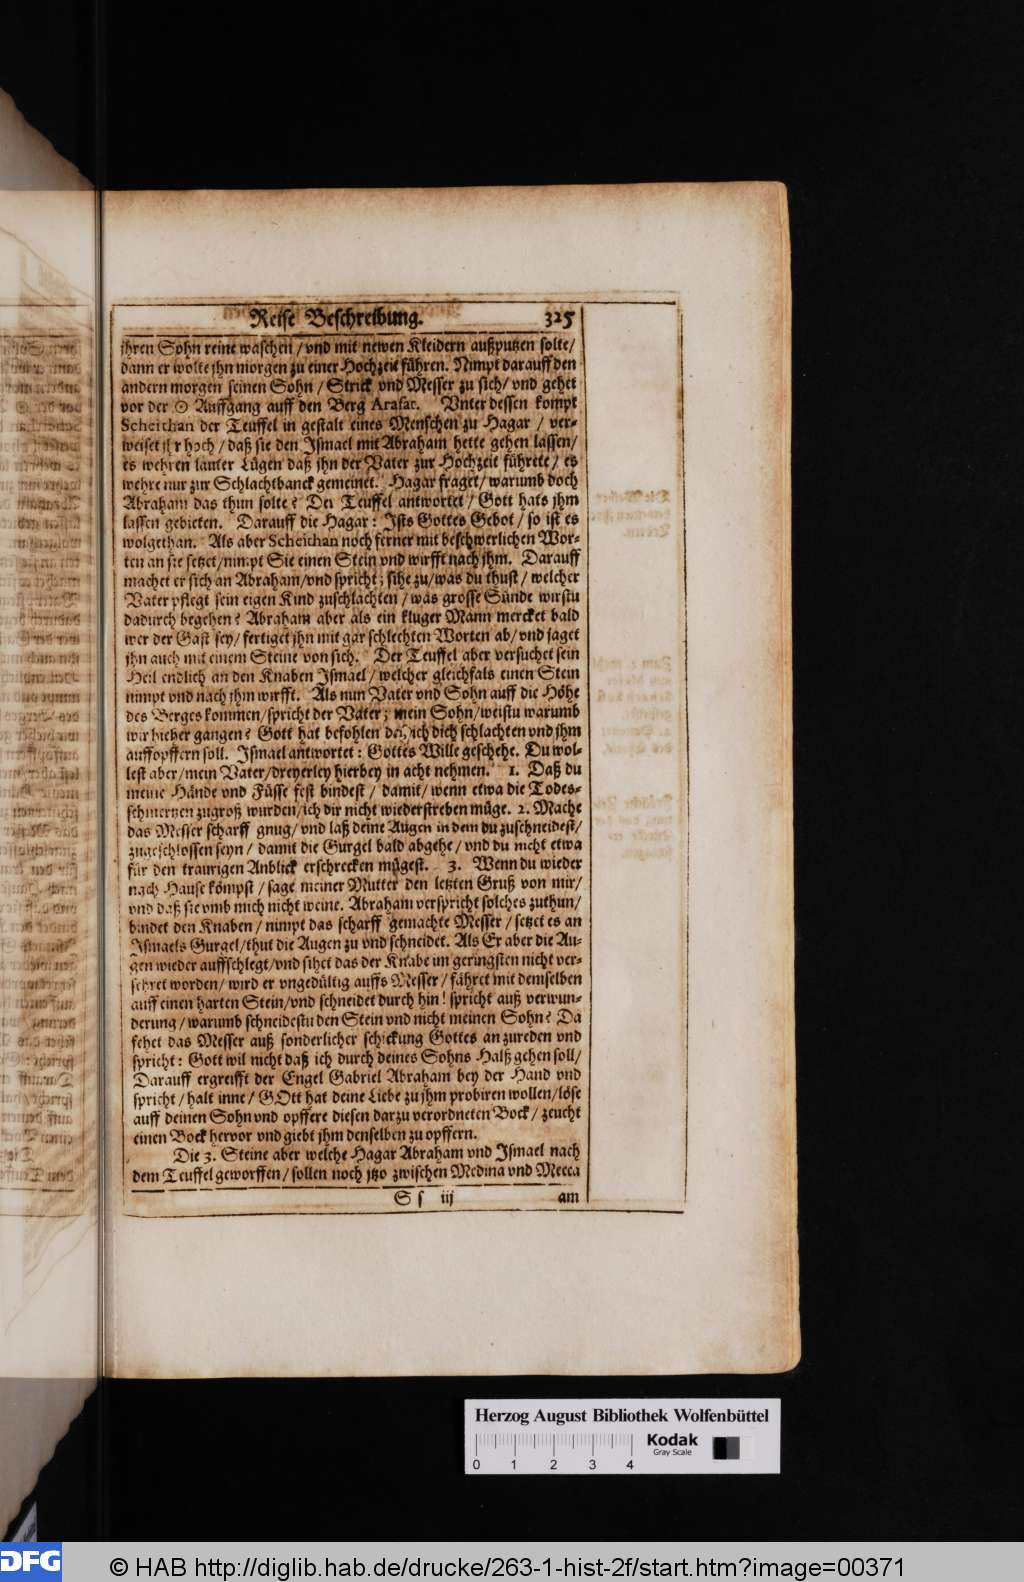 Reise Beschreibung. 325
jhren Sohn reine waschen / vnd mit newen Kleidern außputzen solte/
dann er wolte jhn morgen zu einer Hochzeit führen. Nimpt darauff den
andern morgen seinen Sohn / Strick vnd Messer zu sich / vnd gehet
vor der ☉ Auffgang auff den Berg Arafat. Vnter dessen kompt
Scheithan der Teuffel in gestalt eines Menschen zu Hagar / ver-
weiset jhr hoch / daß sie den Ismael mit Abraham hette gehen lassen/
es wehren lauter Lügen daß jhn der Vater zur Hochzeit führete / es
wehre nur zur Schlachtbanck gemeinet. Hagar fraget / warumb doch
Abraham das thun solte? Der Teuffel antwortet / Gott hats jhm
lassen gebieten. Darauff die Hagar: Ists Gottes Gebot / so ist es
wolgethan. Als aber Scheithan noch ferner mit beschwerlichen Wor-
ten an sie setzet / nimpt Sie einen Stein vnd wirfft nach jhm. Darauff
machet er sich an Abraham / vnd spricht; sihe zu / was du thust / welcher
Vater pflegt sein eigen Kind zuschlachten / was grosse Sünde wirstu
dadurch begehen? Abraham aber als ein kluger Mann mercket bald
wer der Gast sey / fertiget jhn mit gar schlechten Worten ab / vnd jaget
jhn auch mit einem Steine von sich. Der Teuffel aber versuchet sein
Heil endlich an den Knaben Ismael / welcher gleichfals einen Stein
nimpt vnd nach jhm wirfft. Als nun Vater vnd Sohn auff die Höhe
des Berges kommen / spricht der Vater; mein Sohn / weistu warumb
wir hieher gangen? Gott hat befohlen daß ich dich schlachten vnd jhm
auffopffern soll. Ismael antwortet: Gottes Wille geschehe. Du wol-
lest aber / mein Vater / dreyerley hierbey in acht nehmen. 1. Daß du
meine Hände vnd Füsse fest bindest / damit / wenn etwa die Todes-
schmertzen zugroß wurden / ich dir nicht wiederstreben müge. 2. Mache
das Messer scharff gnug / vnd laß deine Augen in dem du zuschneidest/
zugeschlossen seyn / damit die Gurgel bald abgehe / vnd du nicht etwa
für den traurigen Anblick erschrecken mügest. 3. Wenn du wieder
nach Hause kömpst / sage meiner Mutter den letzten Gruß von mir/
vnd daß sie vmb mich nicht weine. Abraham verspricht solches zuthun/
bindet den Knaben / nimpt das scharff gemachte Messer / setzet es an
Ismaels Gurgel / thut die Augen zu vnd schneidet. Als Er aber die Au-
gen wieder auffschlegt / vnd sihet das der Knabe im geringsten nicht ver-
sehret worden / wird er vngedültig auffs Messer / fähret mit demselben
auff einen harten Stein / vnd schneidet durch hin! spricht auß verwun-
derung / warumb schneidestu den Stein vnd nicht meinen Sohn? Da
fehet das Messer auß sonderlicher schickung Gottes an zureden vnd
spricht: Gott wil nicht daß ich durch deines Sohns Halß gehen soll/
Darauff ergreifft der Engel Gabriel Abraham bey der Hand vnd
spricht / halt inne / GOtt hat deine Liebe zu jhm probiren wollen / löse
auff deinen Sohn vnd opffere diesen darzu verordneten Bock / zeucht
einen Bock hervor vnd giebt jhm denselben zu opffern.
Die 3. Steine aber welche Hagar Abraham vnd Ismael nach
dem Teuffel geworffen / sollen noch jtzo zwischen Medina vnd Mecca
S s iij am
Herzog August Bibliothek Wolfenbüttel
Kodak
Gray Scale
0 1 2 3 4
DFG © HAB http://diglib.hab.de/drucke/263-1-hist-2f/start.htm?image=00371